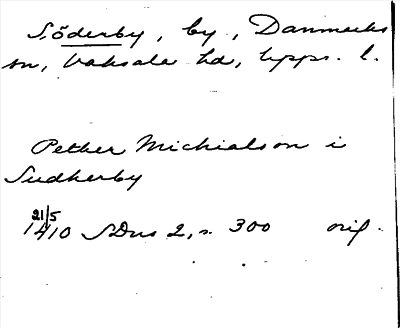 Söderby, by, Danmarks
sn, Vaksala hd, Upps. l.
Pether Michialson i
Sudherby
21/5
1410 SDns 2, s. 300 orig.